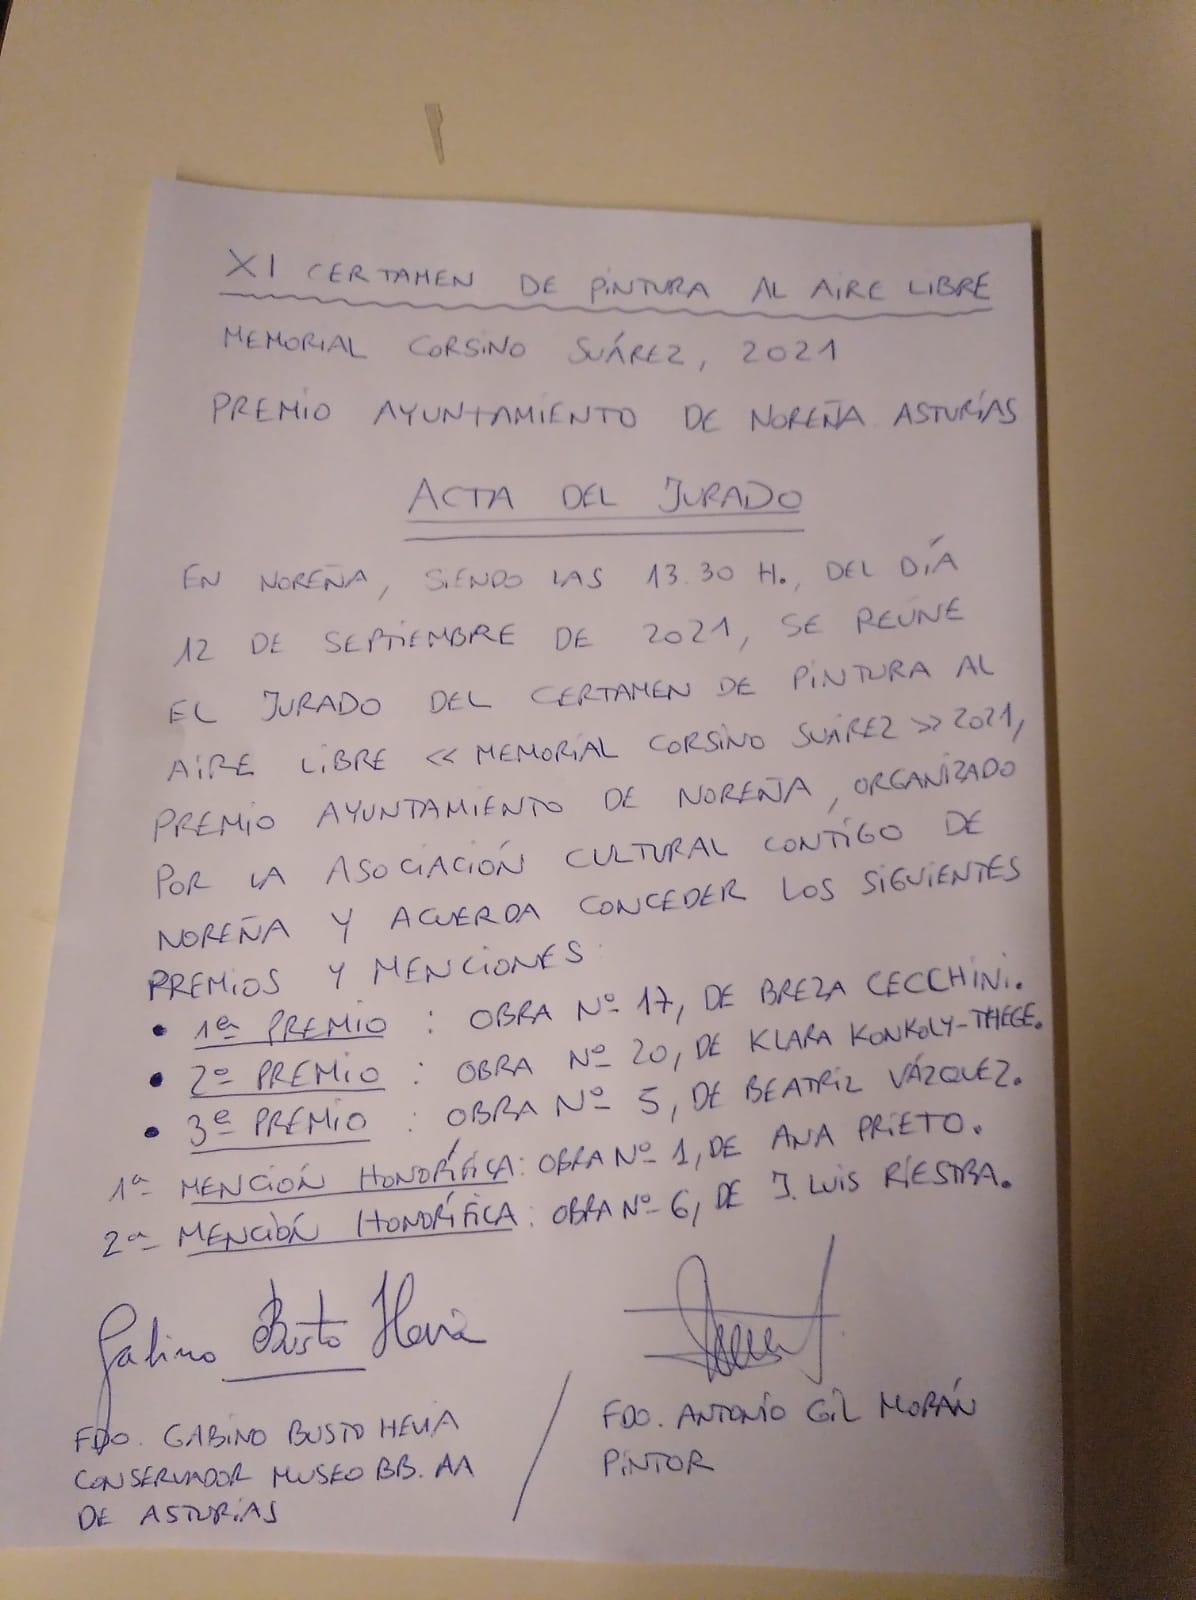 XI CERTAMEN DE PINTURA AL AIRE LIBRE
MEMORIAL CORSINO SUÁREZ, 2021
PREMIO AYUNTAMIENTO DE NOREÑA ASTURIAS
ACTA DEL JURADO
EN NOREÑA, SIENDO LAS 13.30 H., DEL DÍA
12 DE SEPTIEMBRE DE 2021, SE REÚNE
EL JURADO DEL CERTAMEN DE PINTURA AL
AIRE LIBRE << MEMORIAL CORSINO SUÁREZ >> 2021,
PREMIO AYUNTAMIENTO DE NOREÑA, ORGANIZADO
POR LA ASOCIACIÓN CULTURAL CONTIGO DE
NOREÑA Y ACUERDA CONCEDER LOS SIGUIENTES
PREMIOS Y MENCIONES:
• 1er PREMIO : OBRA Nº 17, DE BREZA CECCHINI.
• 2º PREMIO : OBRA Nº 20, DE KLARA KONKOLY-THEGE.
• 3er PREMIO : OBRA Nº 5, DE BEATRIZ VÁZQUEZ.
1ª MENCIÓN HONORÍFICA: OBRA Nº 1, DE ANA PRIETO.
2ª MENCIÓN HONORÍFICA: OBRA Nº 6, DE J. LUIS RIESTRA.
Gabino Busto Hevia
FDO. GABINO BUSTO HEVIA
CONSERVADOR MUSEO BB. AA
DE ASTURIAS
/
FDO. ANTONIO GIL MORÁN
PINTOR